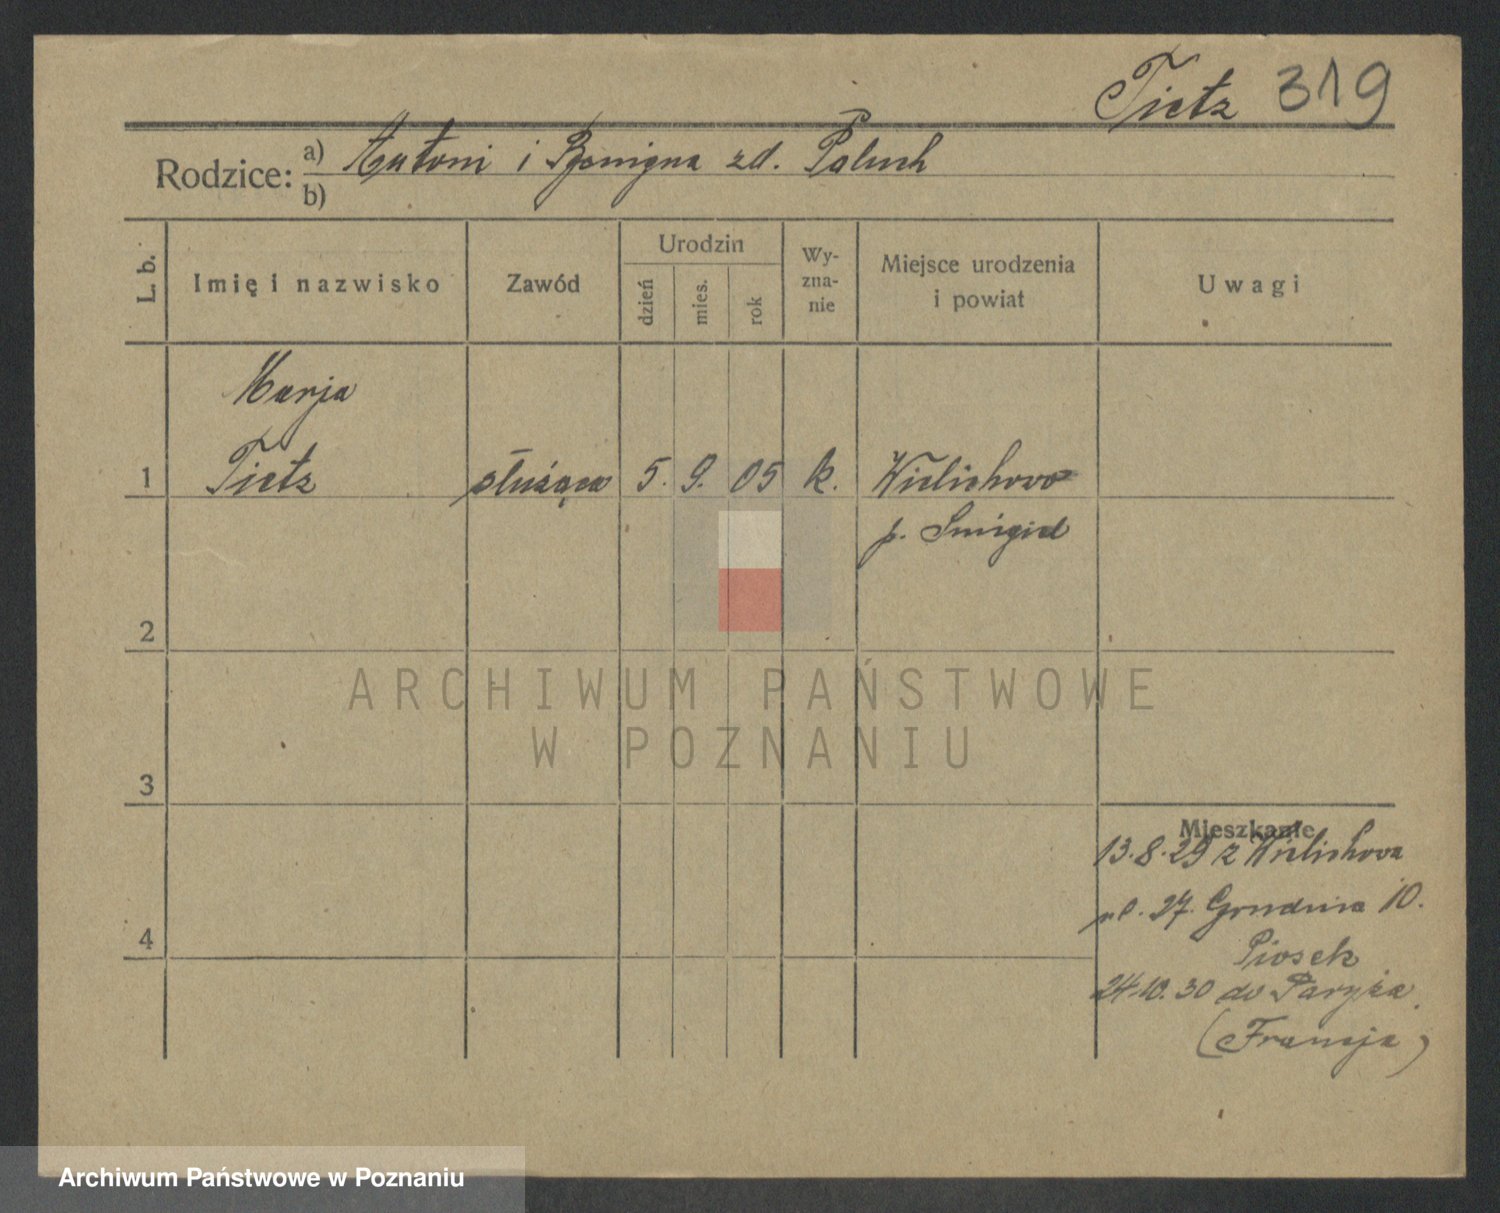 Tietz 319
Rodzice: a) Antoni i Benigna zd. Paluch
b)
L. b.
Imię i nazwisko
Zawód
Urodzin
dzień
mies.
rok
Wy-
zna-
nie
Miejsce urodzenia
i powiat
Uwagi
Marja
1 Tietz służąca 5. 9. 05 k. Wielichowo
p. Śmigiel
2
ARCHIWUM PAŃSTWOWE
W POZNANIU
3
Mieszkanie
13.8.29 z Wielichowa
ul. 27. Grudnia 10.
4
Piosek
24.10.30 do Paryża
(Francja)
Archiwum Państwowe w Poznaniu